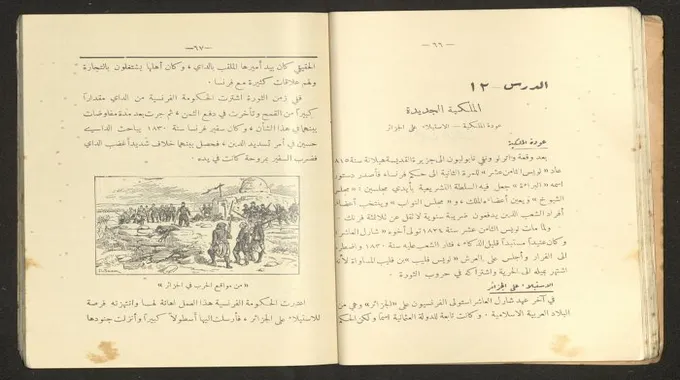 — ٦٦ —
الدرس - ١٢
الملكية الجديدة
عودة الملكية — الاستيلاء على الجزائر
عودة الملكية
بعد وقعة واترلو ونفي نابوليون الى جزيرة القديسة هيلانة سنة ١٨١٥
عاد «لويس الثامن عشر» للمرة الثانية الى حكم فرنسا، فأصدر دستوراً
اسمه «البراءة» جعل فيه السلطة التشريعية بأيدي مجلسين: «مجلس
الشيوخ» ويعين أعضاءه الملك، و «مجلس النواب» وينتخب أعضاءه
أفراد الشعب الذين يدفعون ضريبة سنوية لا تقل عن ثلاثمئة فرنك.
ولما مات لويس الثامن عشر سنة ١٨٢٤ تولى أخوه «شارل العاشر»
وكان عنيداً مستبداً قليل الذكاء، فثار الشعب عليه سنة ١٨٣٠ واضطره
الى الفرار وأجلس على العرش «لويس فليب» من فليب المساواة لأنه
اشتهر بميله الى الحرية واشتراكه في حروب الثورة.
الاستيلاء على الجزائر
في آخر عهد شارل العاشر استولى الفرنسيون على «الجزائر» وهي من
البلاد العربية الاسلامية. وكانت تابعة للدولة العثمانية اسماً ولكن الحكم
— ٦٧ —
الحقيقي كان بيد أميرها الملقب بالداي، وكان أهلها يشتغلون بالتجارة
ولهم علاقات كثيرة مع فرنسا.
ففي زمن الثورة اشترت الحكومة الفرنسية من الداي مقداراً
كبيراً من القمح وتأخرت في دفع الثمن، ثم جرت بعد مدة مفاوضات
بينهما في هذا الشأن، وكان سفير فرنسا سنة ١٨٣٠ يباحث الداي
حسين في أمر تسديد الدين، فحصل بينهما خلاف شديد أغضب الداي
فضرب السفير بمروحة كانت في يده.
«من مواقع الحرب في الجزائر»
اعتبرت الحكومة الفرنسية هذا العمل اهانة لها وانتهزته فرصة
للاستيلاء على الجزائر، فأرسلت اليها أسطولاً كبيراً وأنزلت جنودها